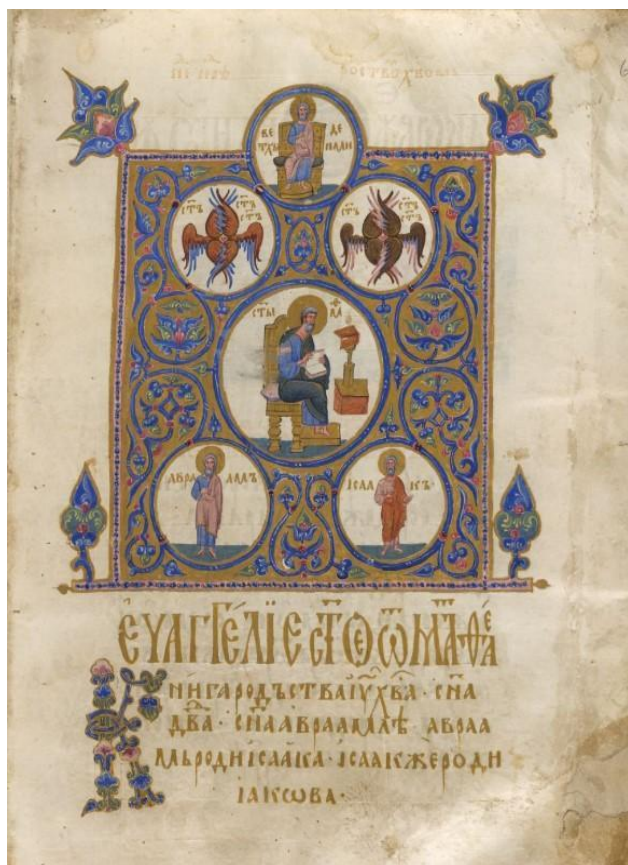 ВЕ ДЕ
ТХЫ НЬДИ
СТЪ СТЪ
СТЪ
СТЪ СТЪ
СТЪ
СТЫ
АВРА АМЪ
ІСАА КЪ
ЕѴАГГЕ́ЛЇЕ СТ҃ОЕ Ѿ МАⷮѲЕ́А
КНИГА РОДЪСТВА ІУ҃ ХВ҃А · СН҃А
ДВ҃А · СН҃А АВРААМЛѢ АВРАА
МЬ РОДИ ІСААКА · ІСААК ЖЕ РОДИ
ІАКѠВА ·